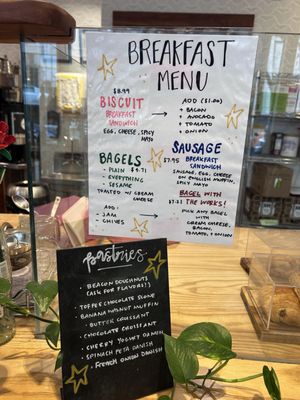 BREAKFAST
MENU
$8.99
BISCUIT
BREAKFAST
SANDWICH
EGG, CHEESE, SPICY
MAYO
ADD ($1.00)
+ BACON
+ AVOCADO
+ TOMATO
+ ONION
BAGELS
- PLAIN $4.71
- EVERYTHING
- SESAME
TOASTED W/ CREAM
CHEESE
ADD:
- JAM
- CHIVES
SAUSAGE
$7.95 BREAKFAST
SANDWICH
SAUSAGE, EGG, CHEESE
ON ENGLISH MUFFIN,
SPICY MAYO
BAGEL WITH
THE WORKS!
PICK ANY BAGEL
WITH
CREAM CHEESE,
BACON,
TOMATO, + ONION
pastries
- BEACON DOUGHNUTS
(ASK FOR FLAVORS!)
- TOFFEE CHOCOLATE SCONE
- BANANA WALNUT MUFFIN
- BUTTER CROISSANT
- CHOCOLATE CROISSANT
- CHERRY YOGURT DANISH
- SPINACH FETA DANISH
- FRENCH ONION DANISH